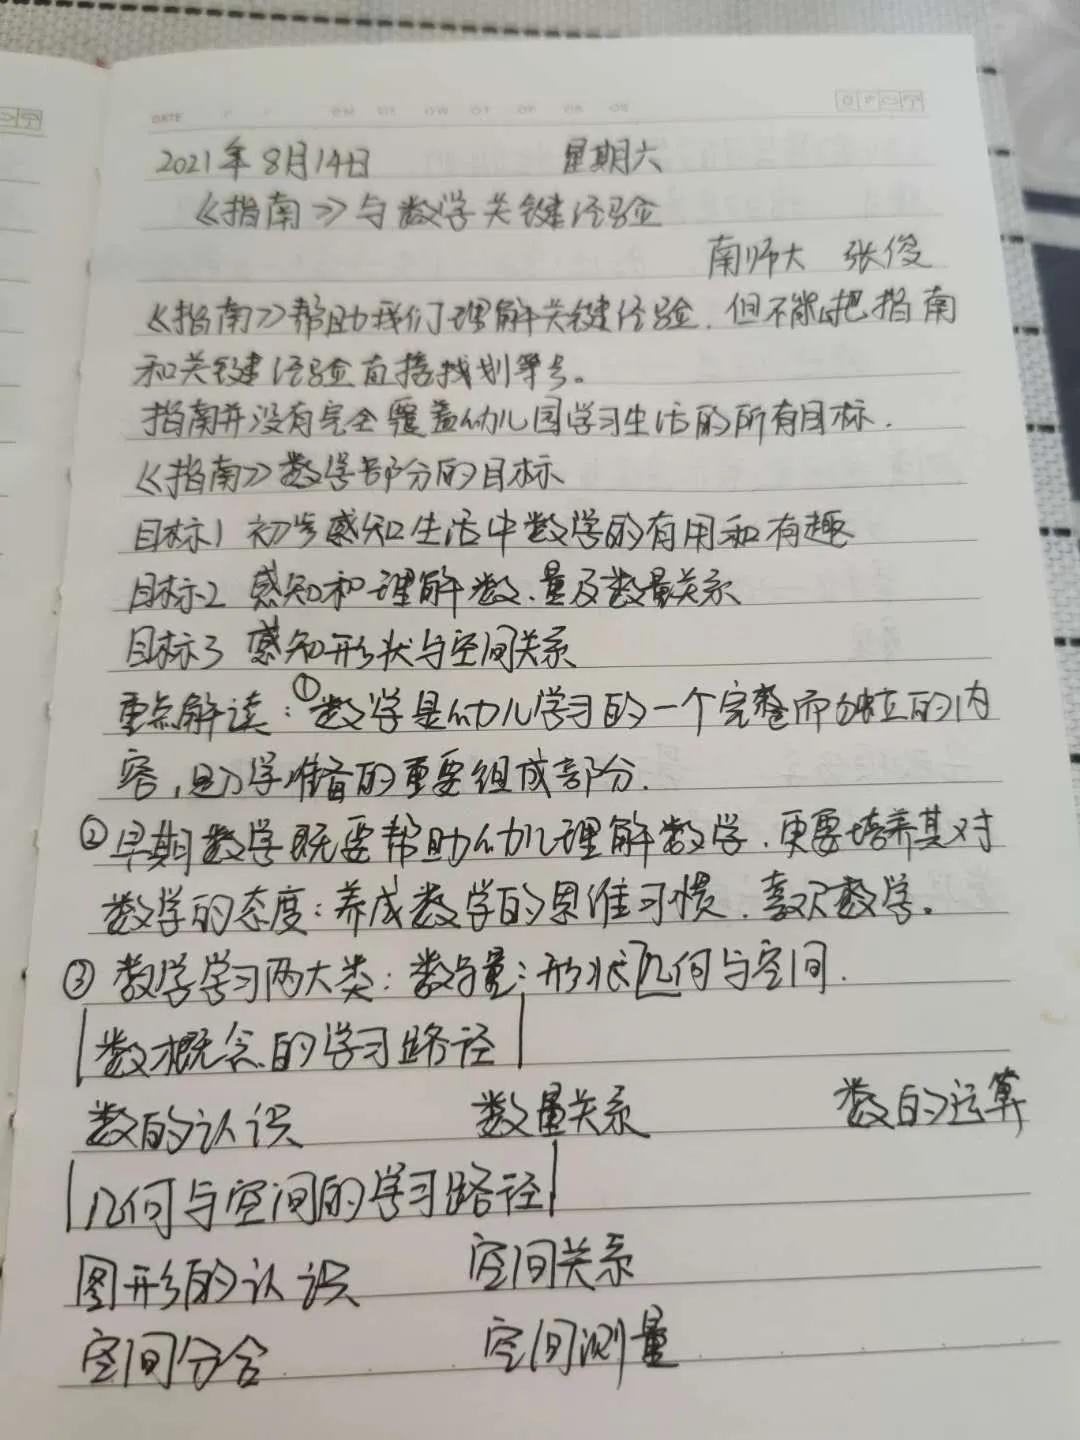 DATE
2021年8月14日 星期六
《指南》与数学关键经验
南师大 张俊
《指南》帮助我们理解关键经验，但不能把指南
和关键经验直接找划等号。
指南并没有完全覆盖幼儿园学习生活的所有目标.
《指南》数学部分的目标
目标1 初步感知生活中数学的有用和有趣
目标2 感知和理解数、量及数量关系
目标3 感知形状与空间关系
重点解读：①数学是幼儿学习的一个完整而独立的内
容，是入学准备的重要组成部分.
②早期数学既要帮助幼儿理解数学，更要培养其对
数学的态度：养成数学的思维习惯，喜欢数学。
③数学学习两大类：数与量；形状几何与空间.
数概念的学习路径
数的认识 数量关系 数的运算
几何与空间的学习路径
图形的认识 空间关系
空间分合 空间测量